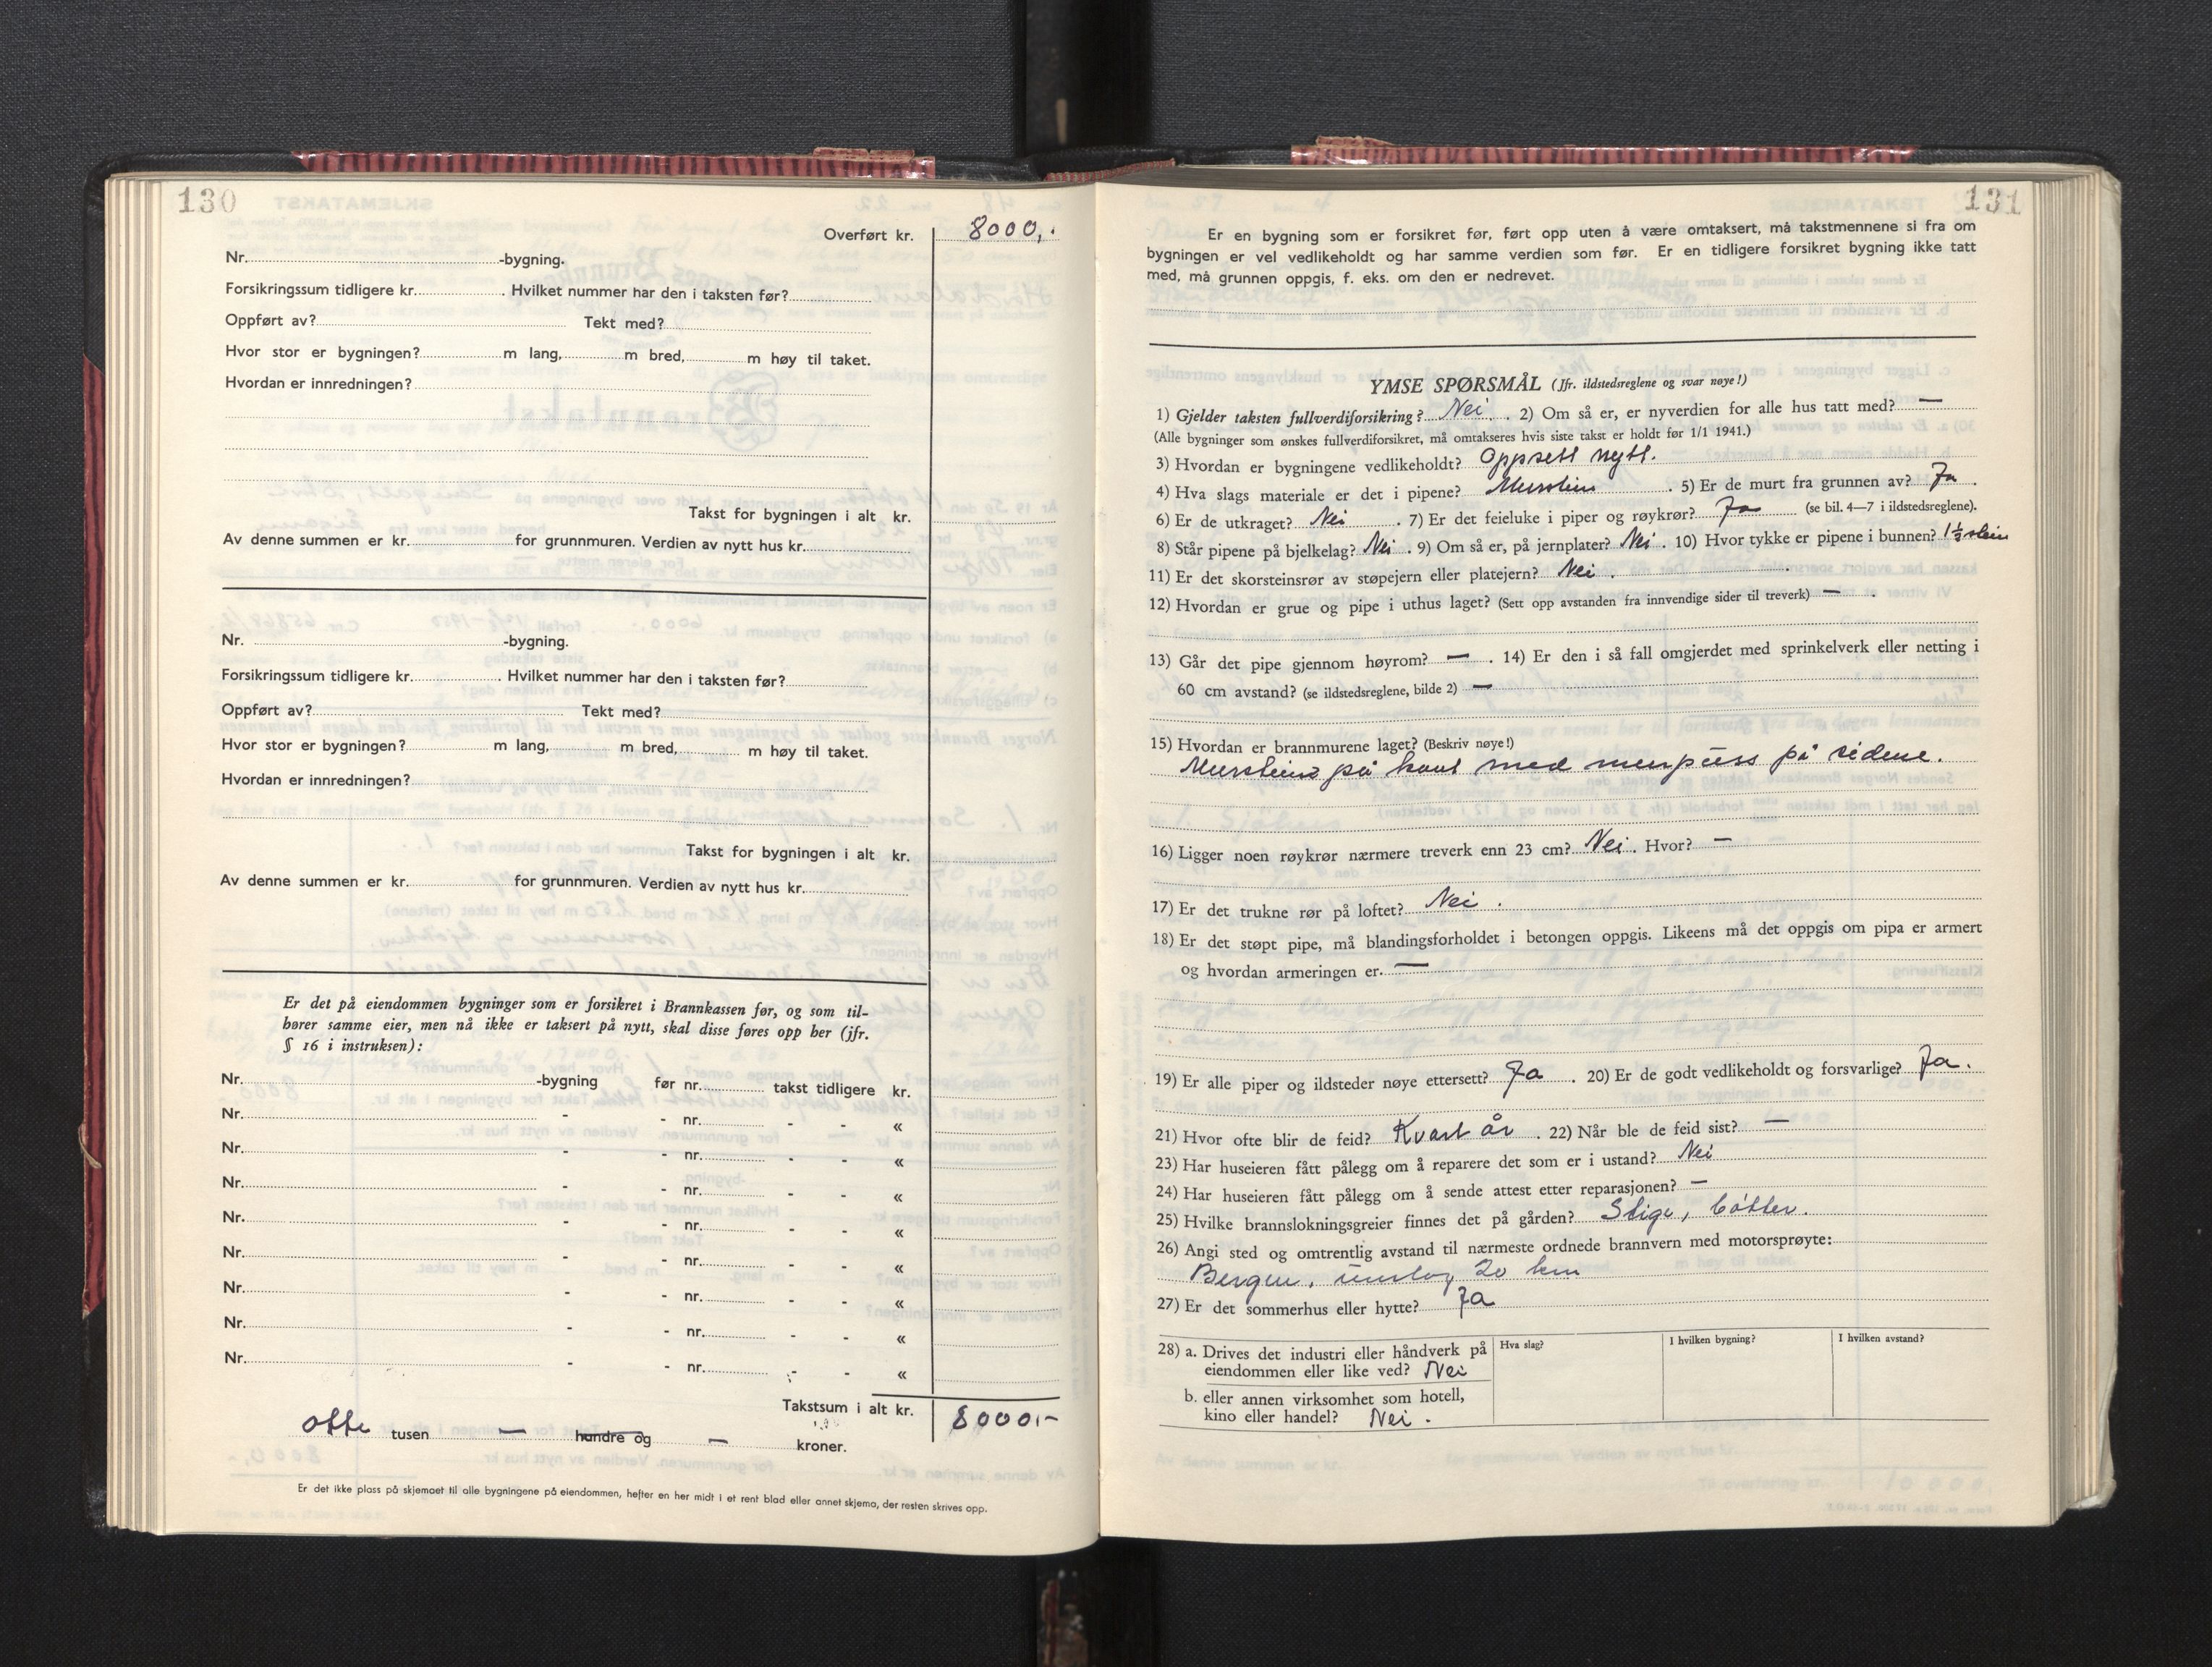 130
Overført kr. 8000,.
Nr. -bygning.
Forsikringssum tidligere kr. . Hvilket nummer har den i taksten før?
Oppført av? Tekt med?
Hvor stor er bygningen? m lang, m bred, m høy til taket.
Hvordan er innredningen?
Takst for bygningen i alt kr.
Av denne summen er kr. for grunnmuren. Verdien av nytt hus kr.
Nr. -bygning.
Forsikringssum tidligere kr. . Hvilket nummer har den i taksten før?
Oppført av? Tekt med?
Hvor stor er bygningen? m lang, m bred, m høy til taket.
Hvordan er innredningen?
Takst for bygningen i alt kr.
Av denne summen er kr. for grunnmuren. Verdien av nytt hus kr.
Er det på eiendommen bygninger som er forsikret i Brannkassen før, og som til-
hører samme eier, men nå ikke er taksert på nytt, skal disse føres opp her (jfr.
§ 16 i instruksen):
Nr. -bygning før nr. takst tidligere kr.
Nr. - - nr. - - «
Nr. - - nr. - - «
Nr. - - nr. - - «
Nr. - - nr. - - «
Nr. - - nr. - - «
Nr. - - nr. - - «
Nr. - - nr. - - «
Nr. - - nr. - - «
Takstsum i alt kr. 8000,-
otte tusen — hundre og — kroner.
Er det ikke plass på skjemaet til alle bygningene på eiendommen, hefter en her midt i et rent blad eller annet skjema, der resten skrives opp.
131
Er en bygning som er forsikret før, ført opp uten å være omtaksert, må takstmennene si fra om
bygningen er vel vedlikeholdt og har samme verdien som før. Er en tidligere forsikret bygning ikke tatt
med, må grunnen oppgis, f. eks. om den er nedrevet.
YMSE SPØRSMÅL (Jfr. ildstedsreglene og svar nøye!)
1) Gjelder taksten fullverdiforsikring? Nei . 2) Om så er, er nyverdien for alle hus tatt med? —
(Alle bygninger som ønskes fullverdiforsikret, må omtakseres hvis siste takst er holdt før 1/1 1941.)
3) Hvordan er bygningene vedlikeholdt? Oppsett nytt.
4) Hva slags materiale er det i pipene? Murstein . 5) Er de murt fra grunnen av? Ja .
6) Er de utkraget? Nei . 7) Er det feieluke i piper og røykrør? Ja (se bil. 4—7 i ildstedsreglene).
8) Står pipene på bjelkelag? Nei . 9) Om så er, på jernplater? Nei . 10) Hvor tykke er pipene i bunnen? 1½ stein
11) Er det skorsteinsrør av støpejern eller platejern? Nei .
12) Hvordan er grue og pipe i uthus laget? (Sett opp avstanden fra innvendige sider til treverk) — .
13) Går det pipe gjennom høyrom? — . 14) Er den i så fall omgjerdet med sprinkelverk eller netting i
60 cm avstand? (se ildstedsreglene, bilde 2) —
15) Hvordan er brannmurene laget? (Beskriv nøye!)
Murstein på kant med murpuss på sidene.
16) Ligger noen røykrør nærmere treverk enn 23 cm? Nei . Hvor? —
17) Er det trukne rør på loftet? Nei .
18) Er det støpt pipe, må blandingsforholdet i betongen oppgis. Likeens må det oppgis om pipa er armert
og hvordan armeringen er. —
19) Er alle piper og ildsteder nøye ettersett? Ja . 20) Er de godt vedlikeholdt og forsvarlige? Ja .
21) Hvor ofte blir de feid? Kvart år . 22) Når ble de feid sist? —
23) Har huseieren fått pålegg om å reparere det som er i ustand? Nei
24) Har huseieren fått pålegg om å sende attest etter reparasjonen? —
25) Hvilke brannslokningsgreier finnes det på gården? Stige, bøtter.
26) Angi sted og omtrentlig avstand til nærmeste ordnede brannvern med motorsprøyte:
Bergen, umlag 20 km
27) Er det sommerhus eller hytte? Ja
28) a. Drives det industri eller håndverk på Hva slag? I hvilken bygning? I hvilken avstand?
eiendommen eller like ved? Nei
b. eller annen virksomhet som hotell,
kino eller handel? Nei .